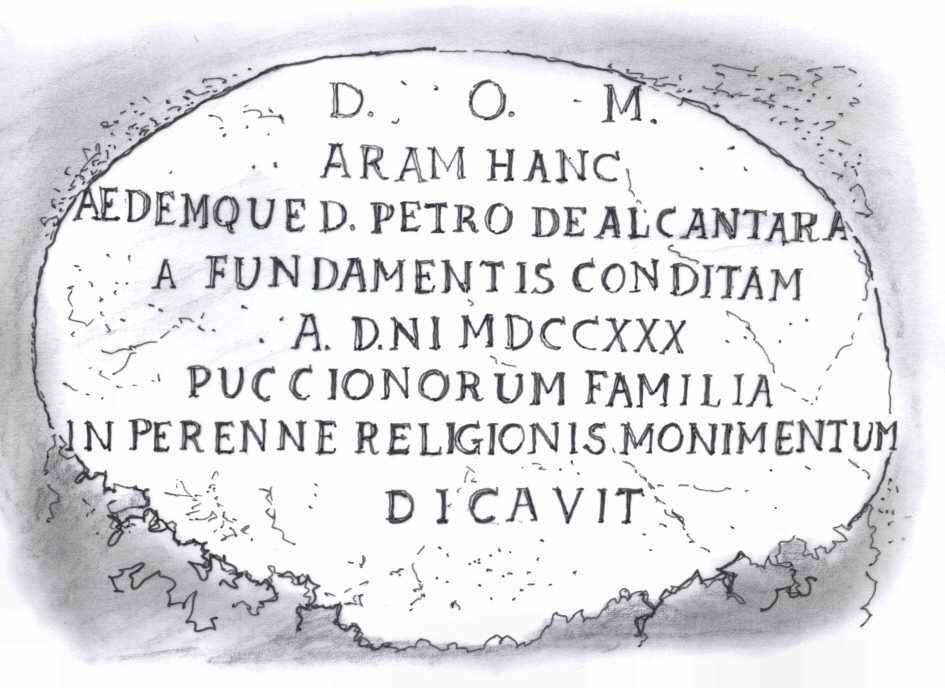 D. O. M.
ARAM HANC
AEDEMQUE D. PETRO DE ALCANTARA
A FUNDAMENTIS CONDITAM
A. D.NI MDCCXXX
PUCCIONORUM FAMILIA
IN PERENNE RELIGIONIS MONIMENTUM
DICAVIT